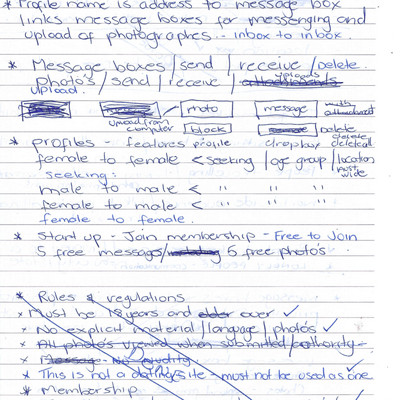 * Profile name is address to message box
links message boxes for messenging and
upload of photographes - inbox to inbox.
* Message boxes / send / receive / Delete.
Photo's / send / receive / uploads
upload.
photo message with attachment
upload from computer block Delete
* profiles - features profile display / delete
female to female < seeking / age group / location
seeking: wide
male to male < " " "
female to male < " " "
female to female.
* Start up - Join membership - Free to join
5 free messages / 5 free photo's
* Rules & regulations
* Must be 18 years and over ✓
* No explicit material / language / photos ✓
* All photo's viewed when submitted / authority
* Message - No
* This is not a dating site - must not be used as one
* Membership